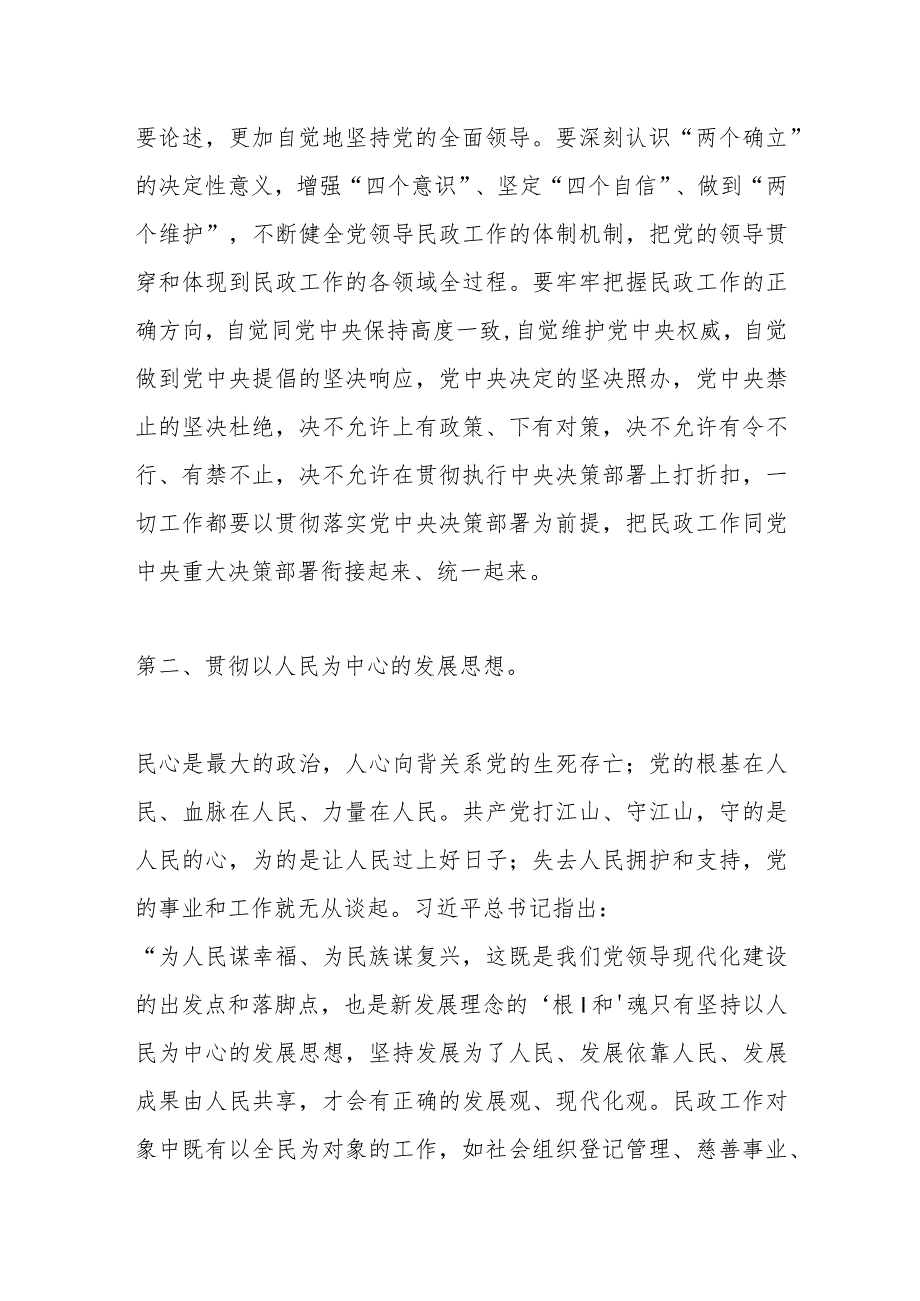 要论述，更加自觉地坚持党的全面领导。要深刻认识“两个确立”
的决定性意义，增强“四个意识”、坚定“四个自信”、做到“两
个维护”，不断健全党领导民政工作的体制机制，把党的领导贯
穿和体现到民政工作的各领域全过程。要牢牢把握民政工作的正
确方向，自觉同党中央保持高度一致,自觉维护党中央权威，自觉
做到党中央提倡的坚决响应，党中央决定的坚决照办，党中央禁
止的坚决杜绝，决不允许上有政策、下有对策，决不允许有令不
行、有禁不止，决不允许在贯彻执行中央决策部署上打折扣，一
切工作都要以贯彻落实党中央决策部署为前提，把民政工作同党
中央重大决策部署衔接起来、统一起来。
第二、贯彻以人民为中心的发展思想。
民心是最大的政治，人心向背关系党的生死存亡；党的根基在人
民、血脉在人民、力量在人民。共产党打江山、守江山，守的是
人民的心，为的是让人民过上好日子；失去人民拥护和支持，党
的事业和工作就无从谈起。习近平总书记指出：
“为人民谋幸福、为民族谋复兴，这既是我们党领导现代化建设
的出发点和落脚点，也是新发展理念的‘根I和'魂只有坚持以人
民为中心的发展思想，坚持发展为了人民、发展依靠人民、发展
成果由人民共享，才会有正确的发展观、现代化观。民政工作对
象中既有以全民为对象的工作，如社会组织登记管理、慈善事业、